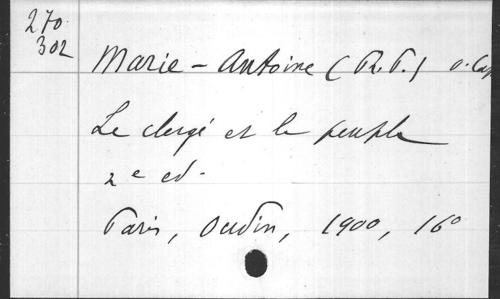 270.
302
Marie-Antoine (R.P.) o. Cap
Le clergé et le peuple
2e ed.
Paris, Oudin, 1900, 16°